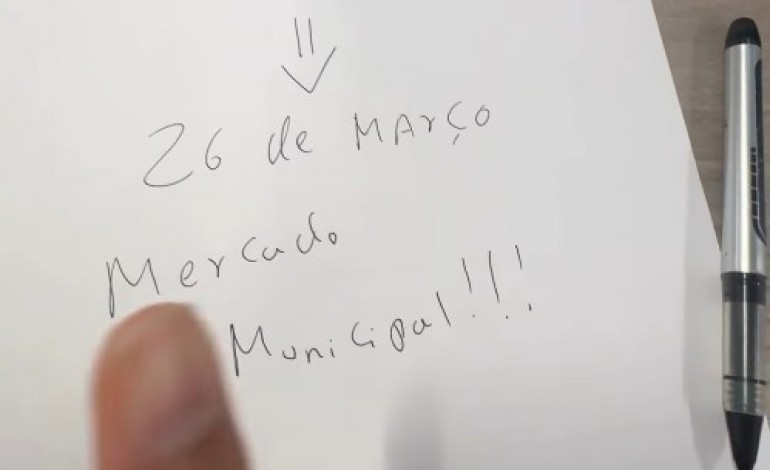 26 de MARÇO
Mercado
Municipal!!!